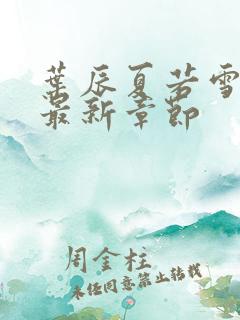 葉辰夏若雪
最新章節
周金柱
未经同意禁止转载